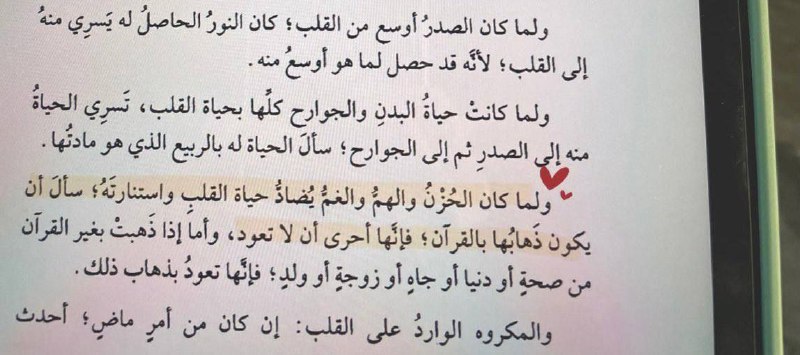 ولما كان الصدرُ أوسع من القلب؛ كان النورُ الحاصلُ له يَسرِي منهُ
إلى القلب؛ لأنَّه قد حصل لما هو أوسعُ منه.
ولما كانتْ حياةُ البدنِ والجوارح كلِّها بحياة القلب، تَسرِي الحياةُ
منه إلى الصدرِ ثم إلى الجوارح؛ سألَ الحياة له بالربيع الذي هو مادتُها.
ولما كان الحُزْنُ والهمُّ والغمُّ يُضادُّ حياة القلبِ واستنارتَهُ؛ سألَ أن
يكون ذَهابُها بالقرآن؛ فإنَّها أحرى أن لا تعود، وأما إذا ذَهبتْ بغير القرآن
من صحةٍ أو دنيا أو جاهٍ أو زوجةٍ أو ولدٍ؛ فإنَّها تعودُ بذهاب ذلك.
والمكروه الواردُ على القلب: إن كان من أمرٍ ماضٍ؛ أحدث